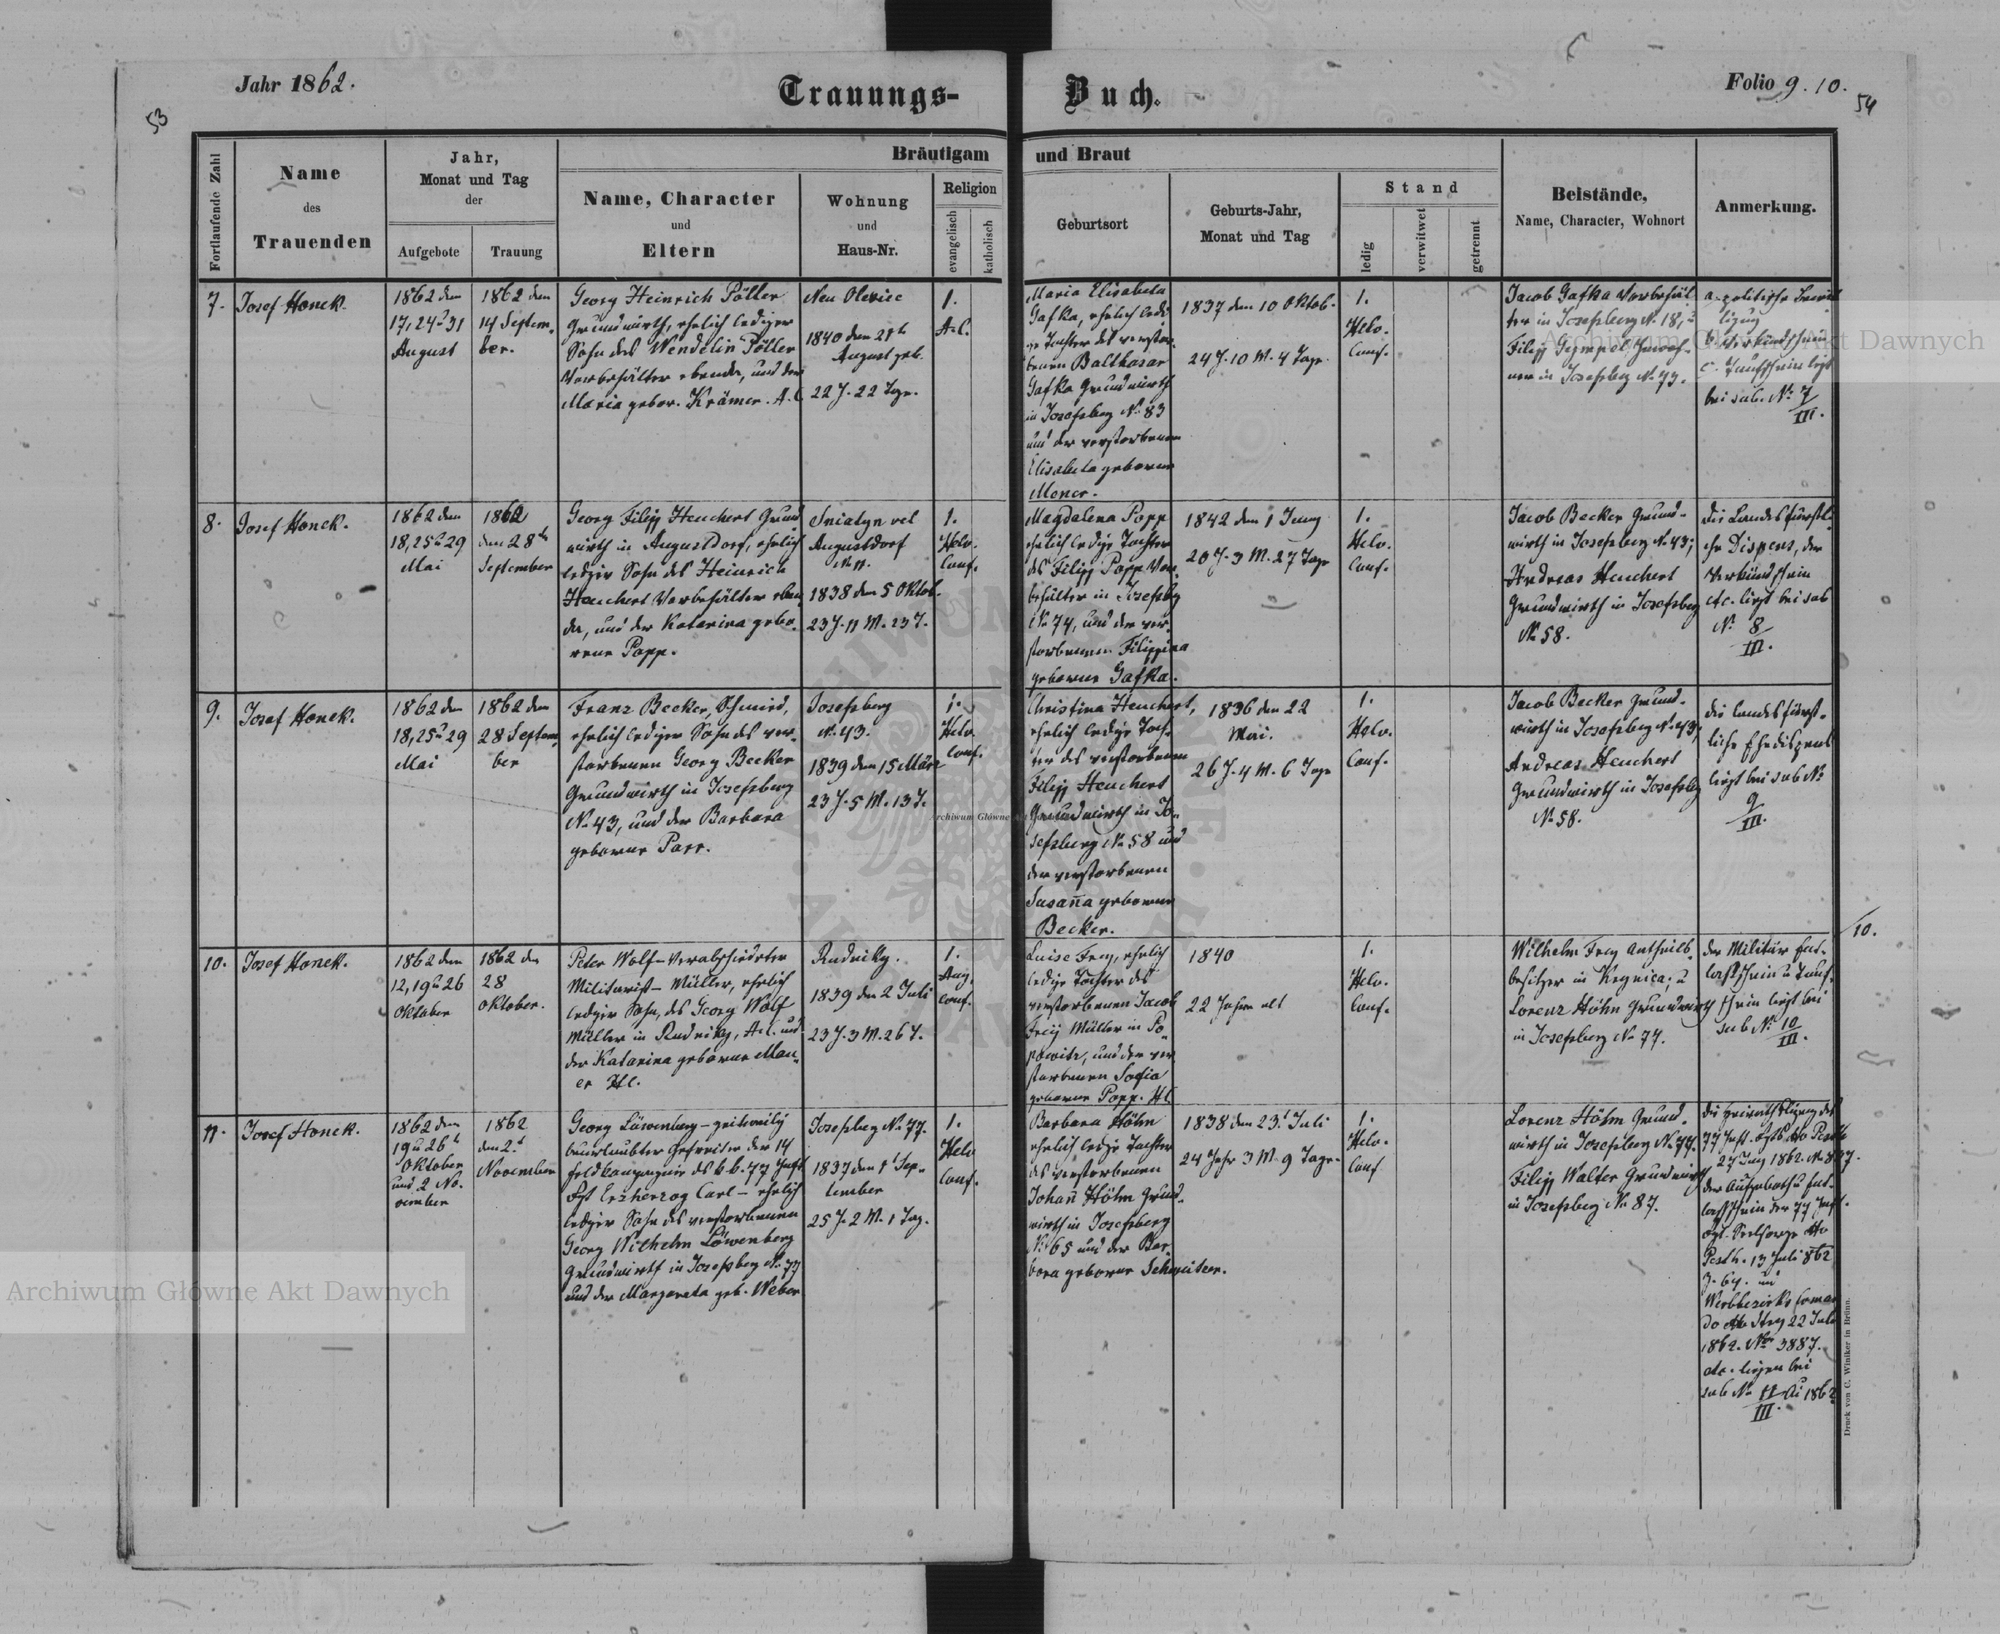 Jahr 1862.
Trauungs-
Buch.
Folio 9. 10.
53
54
Fortlaufende Zahl
Name
des
Trauenden
Jahr,
Monat und Tag
der
Aufgebote
Trauung
Bräutigam
und Braut
Name, Character
und
Eltern
Wohnung
und
Haus-Nr.
Religion
evangelisch
katholisch
Geburtsort
Geburts-Jahr,
Monat und Tag
Stand
ledig
verwitwet
getrennt
Beistände,
Name, Character, Wohnort
Anmerkung.
7.
Josef Honek.
1862 den
17, 24 u 31
August
1862 den
14 Septem-
ber.
Georg Heinrich Pöller
Grundwirth, ehelich lediger
Sohn des Wendelin Pöller
Vorbehälter ebenda, und der
Maria gebor. Krämer. A.C.
Neu Oleviec
1840 den 21th
August geb.
22 J. 22 Tage.
1.
A.C.
Maria Elisabeta
Gafka, ehelich ledi-
ge Tochter des verstor-
benen Balthasar
Gafka Grundwirth
in Josefsberg No 83
und der verstorbenen
Elisabeta geborene
1837 den 10 Oktob.
24 J. 10 M. 4 Tage.
1.
Helv.
Conf.
Jacob Gafka Vorbehäl-
ter in Josefsberg No 18, u
Filipp Gempel
in Josefsberg No 73.
a. politische
c. Taufschein liegt
bei sub. No 7
III.
8.
Josef Honek.
1862 den
18, 25 u 29
Mai
1862
den 28th
September
Georg Filipp Heuchert Grund
wirth in Augustdorf, ehelich
lediger Sohn des Heinrich
Heuchert Vorbehälter eben
da, und der Katarina gebo-
rene Popp.
Sniatyn vel
Augustdorf
No 11.
1838 den 5 Oktob.
23 J. 11 M. 23 T.
1.
Helv.
Conf.
Magdalena Popp
ehelich ledige Tochter
des Filipp Popp Vor-
behälter in Josefsbg
No 74, und der ver-
storbenen Filippina
geborene Gafka.
1842 den 1 Juny
20 J. 3 M. 27 Tage
1.
Helv.
Conf.
Jacob Becker Grund-
wirth in Josefsberg No 43;
Andreas Heuchert
Grundwirth in Josefsberg
No 58.
die Landesfürstli-
che Dispens, der
Verkündschein
etc. liegt bei sub
No 8
III.
9.
Josef Honek.
1862 den
18, 25 u 29
Mai
1862 den
28 Septem
ber
Franz Becker, Schmied,
ehelich lediger Sohn des ver-
storbenen Georg Becker
Grundwirth in Josefsberg
No 43, und der Barbara
geborene Parr.
Josefsberg
No 43.
1839 den 15 März
23 J. 5 M. 13 T.
1.
Helv.
Conf.
Christina Heuchert,
ehelich ledige Toch-
ter des verstorbenen
Filipp Heuchert
Grundwirth in Jo-
sefsberg No 58 und
der verstorbenen
Susanna geborene
Becker.
1836 den 22
Mai.
26 J. 4 M. 6 Tage
1.
Helv.
Conf.
Jacob Becker Grund-
wirth in Josefsberg No 43,
Andreas Heuchert
Grundwirth in Josefsbg
No 58.
die landesfürst-
liche Ehedispens
liegt bei sub No
9
III.
10.
10.
Josef Honek.
1862 den
12, 19 u 26
Oktober
1862 den
28
Oktober.
Peter Wolf – Verabschiedeter
Militärist – Müller, ehelich
lediger Sohn, des Georg Wolf
Müller in Rudniky, A.C. und
der Katarina geborene Mau-
er H.C.
Rudniky.
1839 den 2 Juli
23 J. 3 M. 26 T.
1.
Aug.
Conf.
Luise Frey, ehelich
ledige Tochter des
verstorbenen Jacob
Frey Müller in Po-
powitz, und der ver
storbenen Sofia
geborene Popp. H.C.
1840
22 Jahre alt
1.
Helv.
Conf.
Wilhelm Frey Antheils-
besitzer in Kegnica; u
Lorenz Höhn Grundwirth
in Josefsberg No 77.
der Militär Ent-
lassschein u Tauf-
schein liegt bei
sub No 10
III.
11.
Josef Honek.
1862 den
19 u 26th
Oktober
und 2 No-
vember
1862
den 2t
November
Georg Löwenberg – zeitweilig
beurlaubter Gefreiter der 14
Feldkompagnie des k.k. 77 Inft
Rgt Erzherzog Carl – ehelich
lediger Sohn des verstorbenen
Georg Wilhelm Löwenberg
Grundwirth in Josefsberg No 77
und der Margareta geb. Weber
Josefsberg No 77.
1837 den 1t Sep-
tember
25 J. 2 M. 1 Tag.
1.
Helv.
Conf.
Barbara Höhn
ehelich ledige Tochter
des verstorbenen
Johann Höhn Grund-
wirth in Josefsberg
No 65 und der Bar-
bara geborene Schweitzer.
1838 den 23t Juli
24 Jahr 3 M. 9 Tage.
1.
Helv.
Conf
Lorenz Höhn Grund-
wirth in Josefsberg No 77.
Filipp Walter Grundwirth
in Josefsberg No 87.
77 Inft.
27 Juny 1862.
der Aufgeboth u Ent-
lassschein der 77 Inft.
Rgt. Seelsorge
Pesth. 13 Juli 862
Z. 64. und
Werbbezirks Coman
do Stry 22 Juli
1862. No 3887.
etc. liegen bei
sub No 11 ai 1862
III.
Druck von C. Winiker in Brünn.
Archiwum Główne Akt Dawnych
Archiwum Główne Akt Dawnych